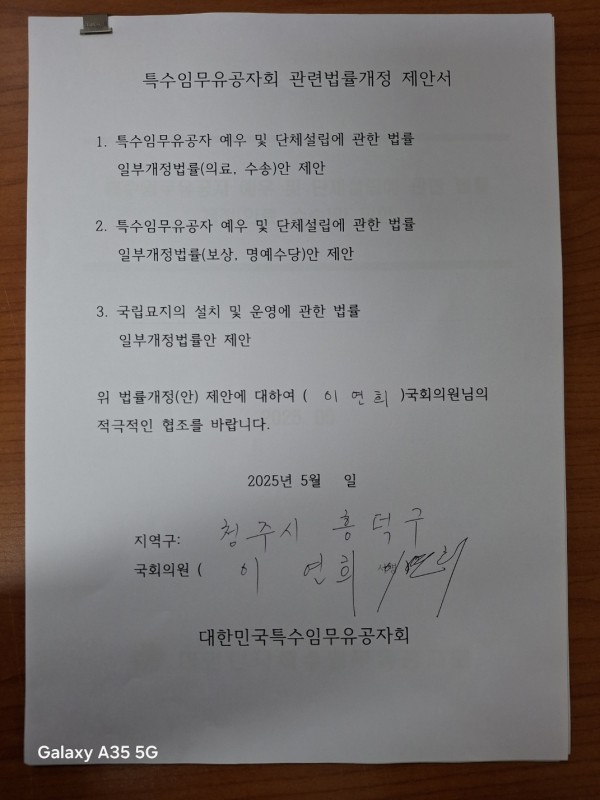 특수임무유공자회 관련법률개정 제안서
1. 특수임무유공자 예우 및 단체설립에 관한 법률
일부개정법률(의료, 수송)안 제안
2. 특수임무유공자 예우 및 단체설립에 관한 법률
일부개정법률(보상, 명예수당)안 제안
3. 국립묘지의 설치 및 운영에 관한 법률
일부개정법률안 제안
위 법률개정(안) 제안에 대하여 ( 이 연 희 )국회의원님의
적극적인 협조를 바랍니다.
2025년 5월 일
지역구: 청주시 흥덕구
국회의원 ( 이 연희
대한민국특수임무유공자회
Galaxy A35 5G